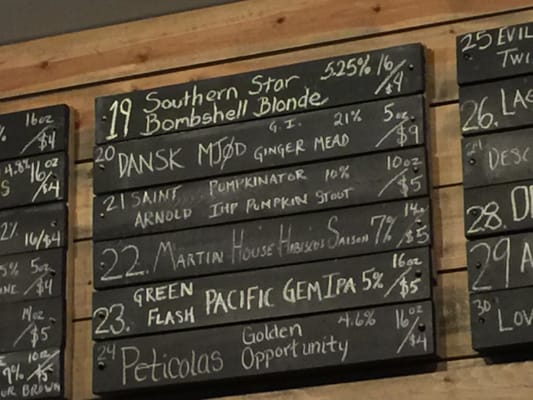 16oz
/$4
4.8% 16oz
S /$4
2% 16/$4
5% 5oz
/$4
14oz
/$5
10oz
9% /$5
UR BROWN
19 Southern Star 5.25% 16/$4
Bombshell Blonde
20 DANSK MJØD G.I. 21% 5oz
GINGER MEAD /$9
21 SAINT PUMPKINATOR 10% 10oz
ARNOLD IMP PUMPKIN STOUT /$5
22. MARTIN HOUSE HIBISCUS SAISON 7% 14oz /$5
23. GREEN FLASH PACIFIC GEM IPA 5% 16oz /$5
24 Peticolas Golden 4.6% 16oz
Opportunity /$4
25 EVIL
TWI
26. LA
DESC
28. D
29 A
30 LOV